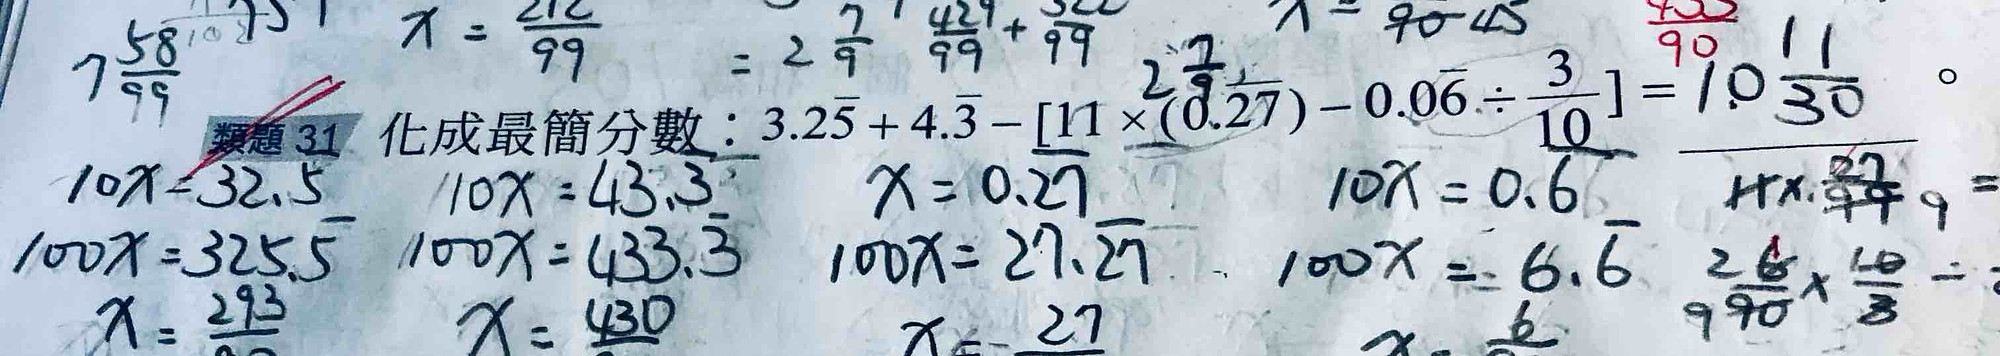 7 58/99
x = 212/99
= 2 7/9
429/99 +
2 7/9
90
類題 31 化成最簡分數：3.25̅ + 4.3̅ − [11 × (0.2̅7̅) − 0.06̅ ÷ 3/10] = 10 11/30 。
10x = 32.5̅ 10x = 43.3̅ x = 0.2̅7̅ 10x = 0.6̅
100x = 325.5̅ 100x = 433.3̅ 100x = 27.2̅7̅ 100x = 6.6̅
x = 293 x = 430 x = 27 x = 6